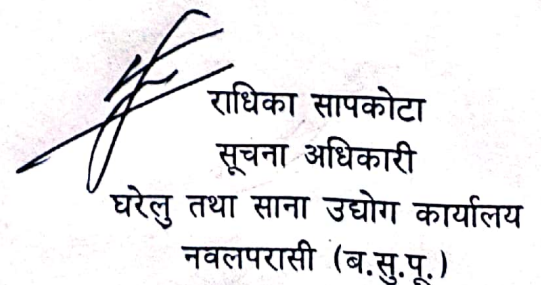 राधिका सापकोटा
सूचना अधिकारी
घरेलु तथा साना उद्योग कार्यालय
नवलपरासी (ब.सु.पू.)